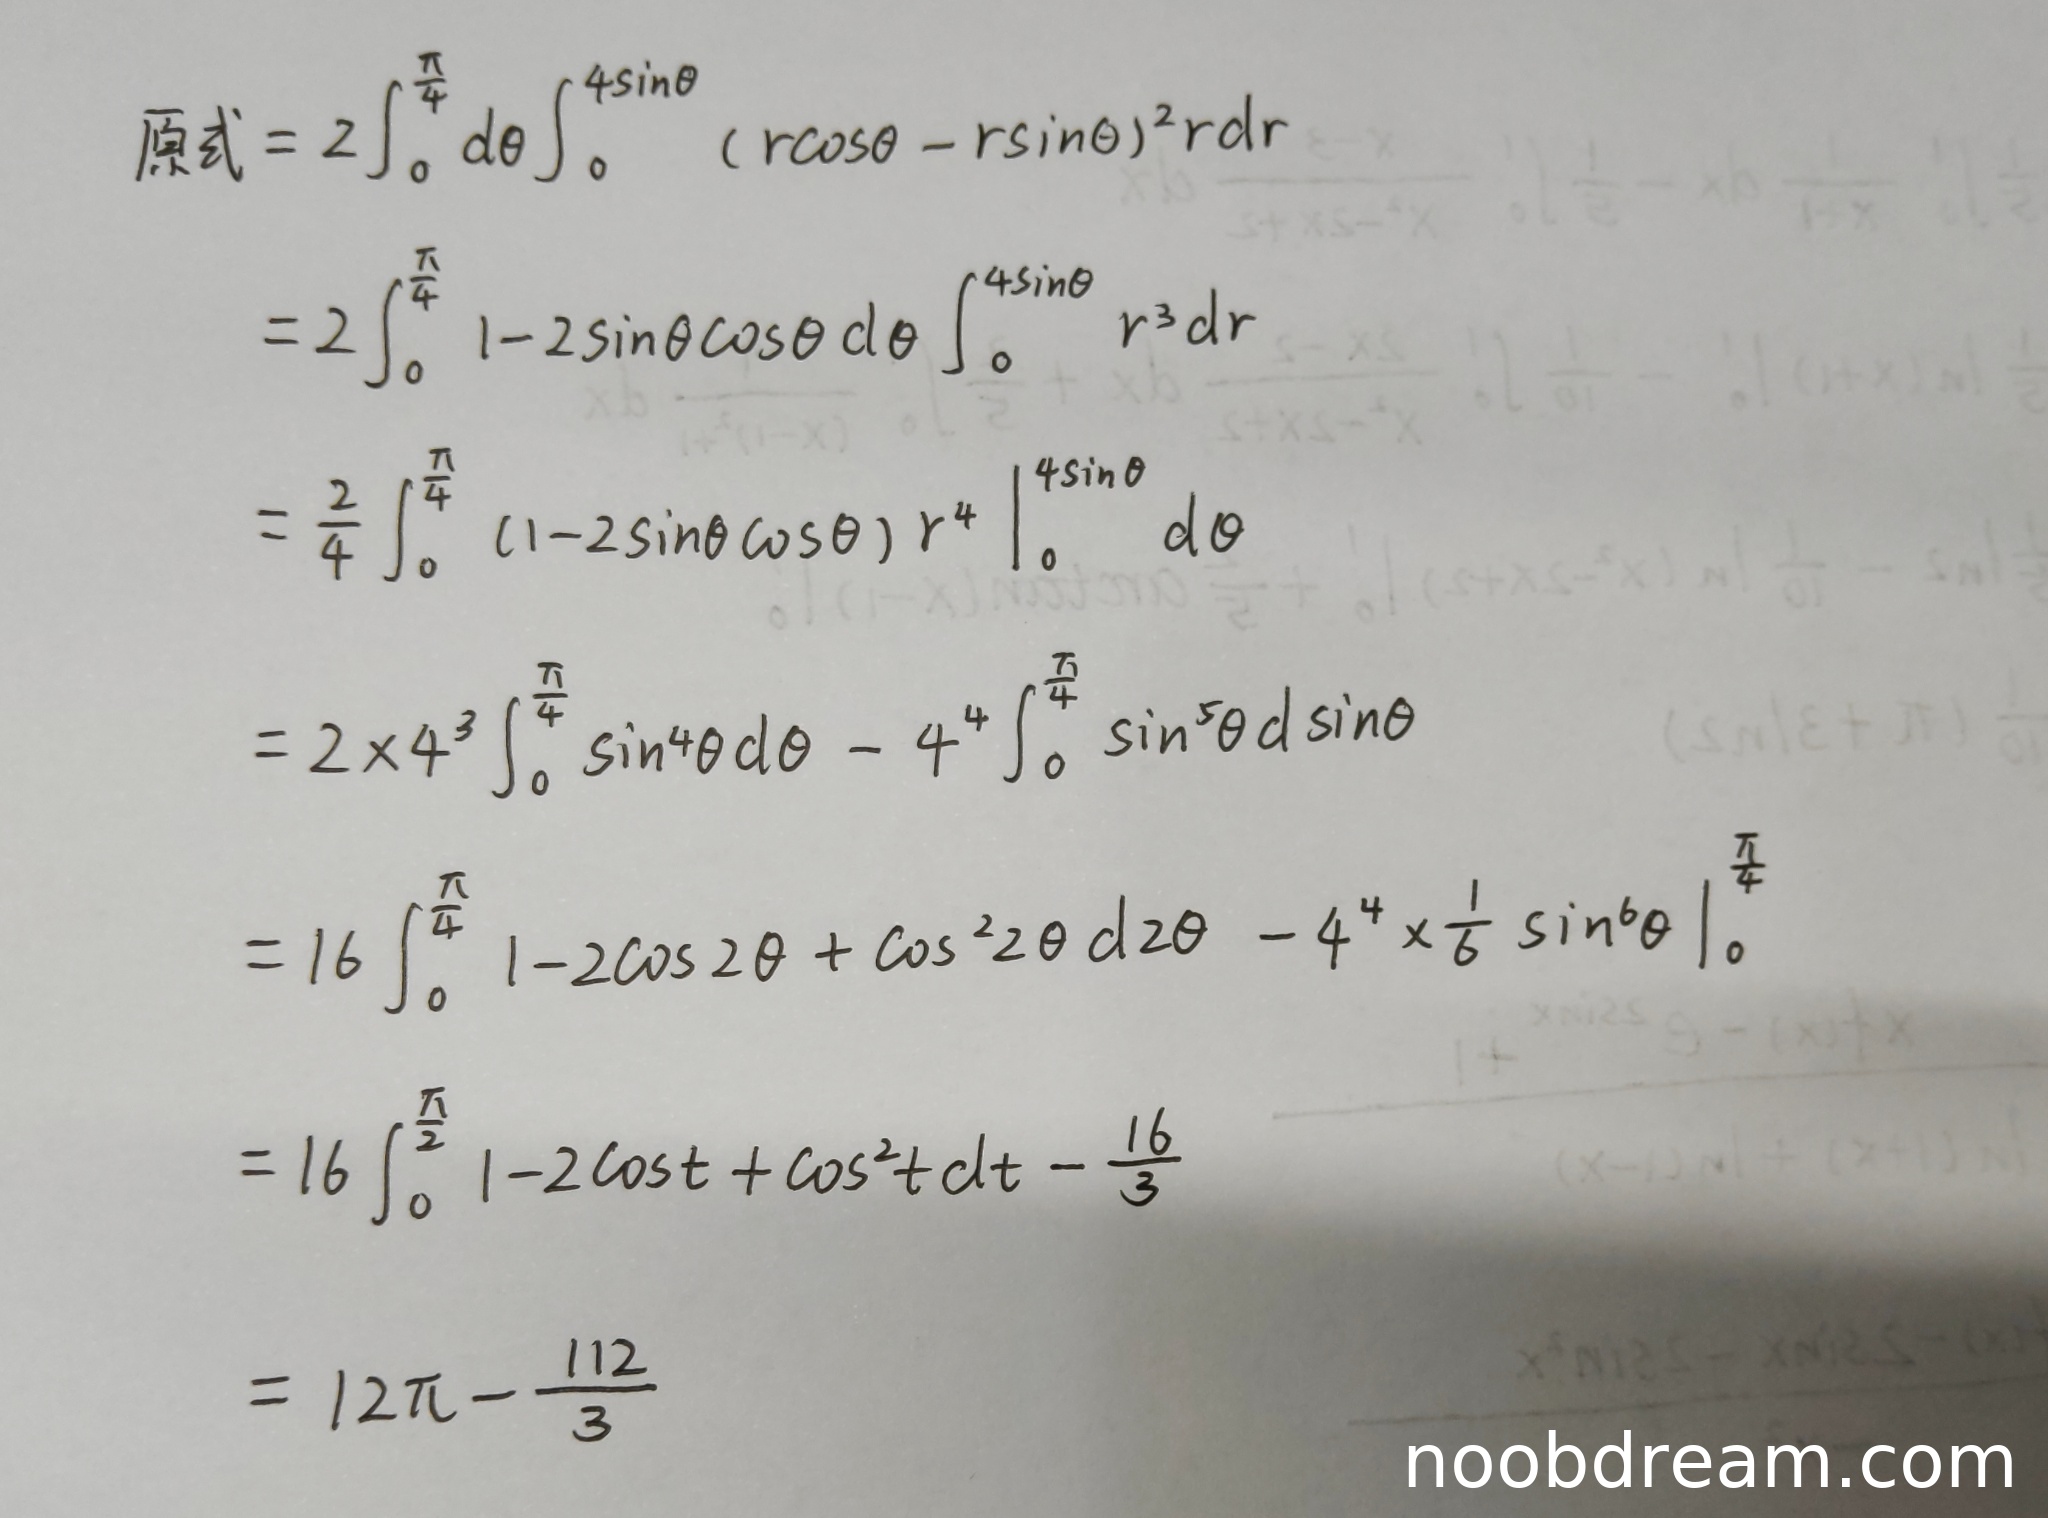 原式 = 2∫₀^{π/4} dθ ∫₀^{4sinθ} (rcosθ − rsinθ)² r dr
= 2∫₀^{π/4} 1−2sinθcosθ dθ ∫₀^{4sinθ} r³ dr
= 2/4 ∫₀^{π/4} (1−2sinθcosθ) r⁴ |₀^{4sinθ} dθ
= 2×4³ ∫₀^{π/4} sin⁴θ dθ − 4⁴ ∫₀^{π/4} sin⁵θ d sinθ
= 16 ∫₀^{π/4} 1−2cos2θ + cos²2θ d2θ − 4⁴ × 1/6 sin⁶θ |₀^{π/4}
= 16 ∫₀^{π/2} 1−2cost + cos²t dt − 16/3
= 12π − 112/3
noobdream.com